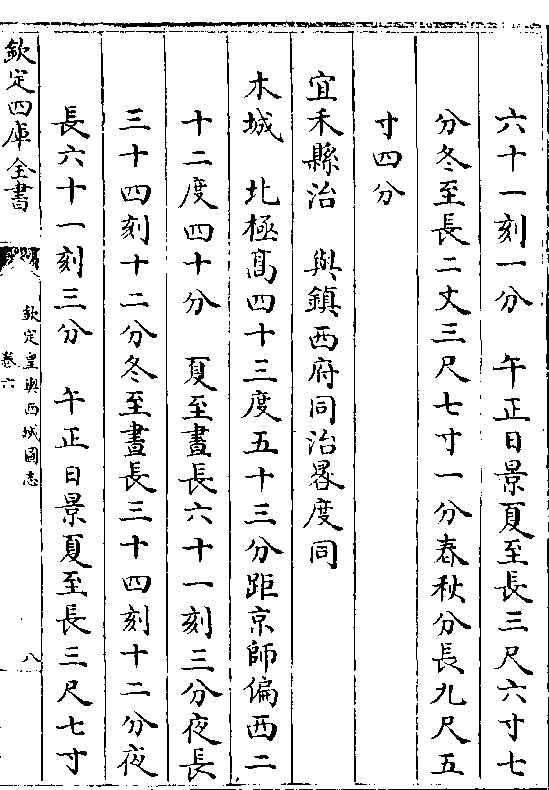 六十一刻一分　午正日景夏至長三尺六寸七
分冬至長二丈三尺七寸一分春秋分長九尺五
寸四分
宜禾縣治　與鎮西府同治晷度同
木城　北極髙四十三度五十三分距京師偏西二
十二度四十分　夏至晝長六十一刻三分夜長
三十四刻十二分冬至晝長三十四刻十二分夜
長六十一刻三分　午正日景夏至長三尺七寸
欽定四庫全書
欽定皇輿西域圖志
卷六
八